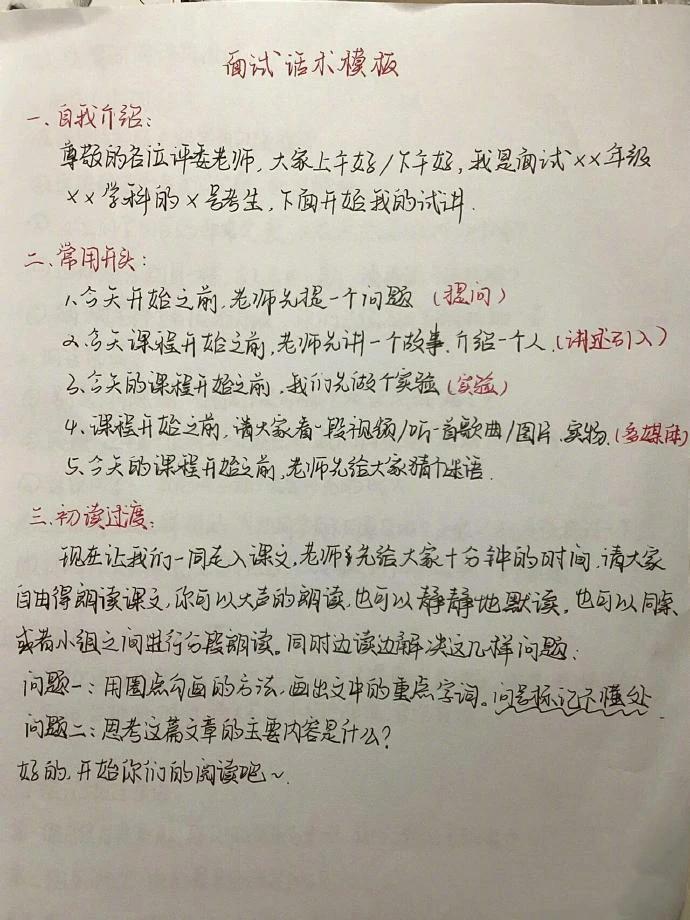 面试话术模板
一、自我介绍:
尊敬的各位评委老师,大家上午好/下午好,我是面试××年级
××学科的×号考生,下面开始我的试讲.
二、常用开头:
1.今天开始之前,老师先提一个问题(提问)
2.今天课程开始之前,老师先讲一个故事.介绍一个人.(讲述引入)
3.今天的课程开始之前,我们先做个实验(实验)
4.课程开始之前,请大家看一段视频/听一首歌曲/图片.实物.(多媒体)
5.今天的课程开始之前,老师先给大家猜个谜语.
三.初读过度:
现在让我们一同走入课文,老师先给大家十分钟的时间,请大家
自由得朗读课文,你可以大声的朗读,也可以静静地默读。也可以同桌
或者小组之间进行分段朗读。同时边读边解决这几样问题:
问题一:用圈点勾画的方法,画出文中的重点字词。问号标记不懂处.
问题二:思考这篇文章的主要内容是什么?
好的,开始你们的阅读吧~